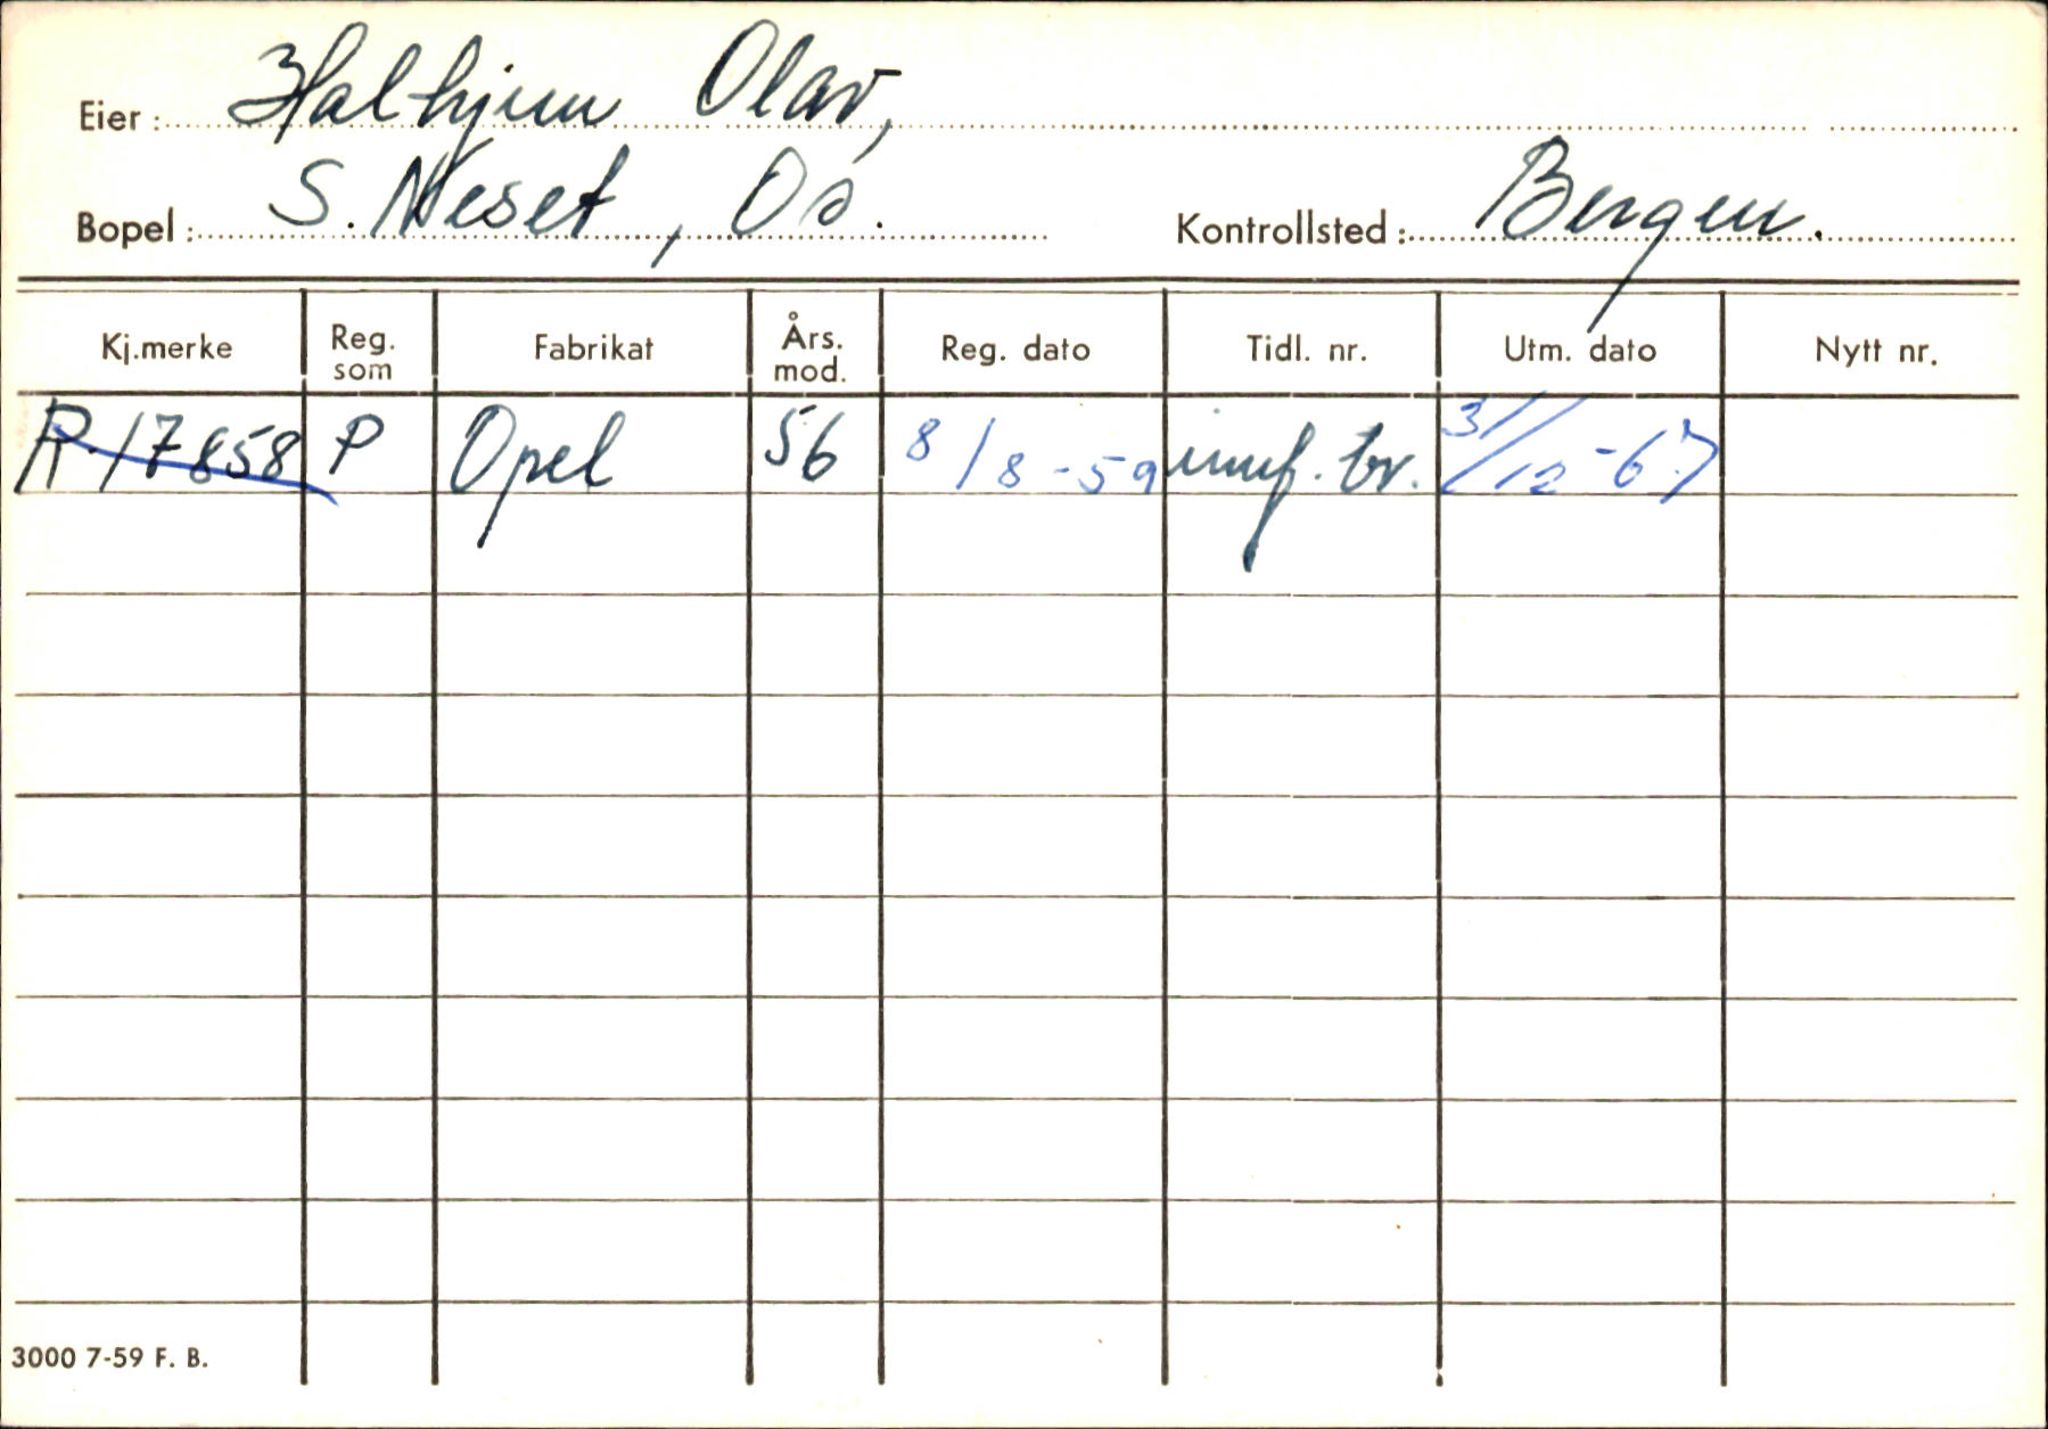 Eier: Halhjem Olav,
Bopel: S. Neset, Os. Kontrollsted: Bergen.
Kj.merke Reg. som Fabrikat Års. mod. Reg. dato Tidl. nr. Utm. dato Nytt nr.
R-17858 P Opel 56 8/8-59 innf. br. 31/12-67
3000 7-59 F. B.